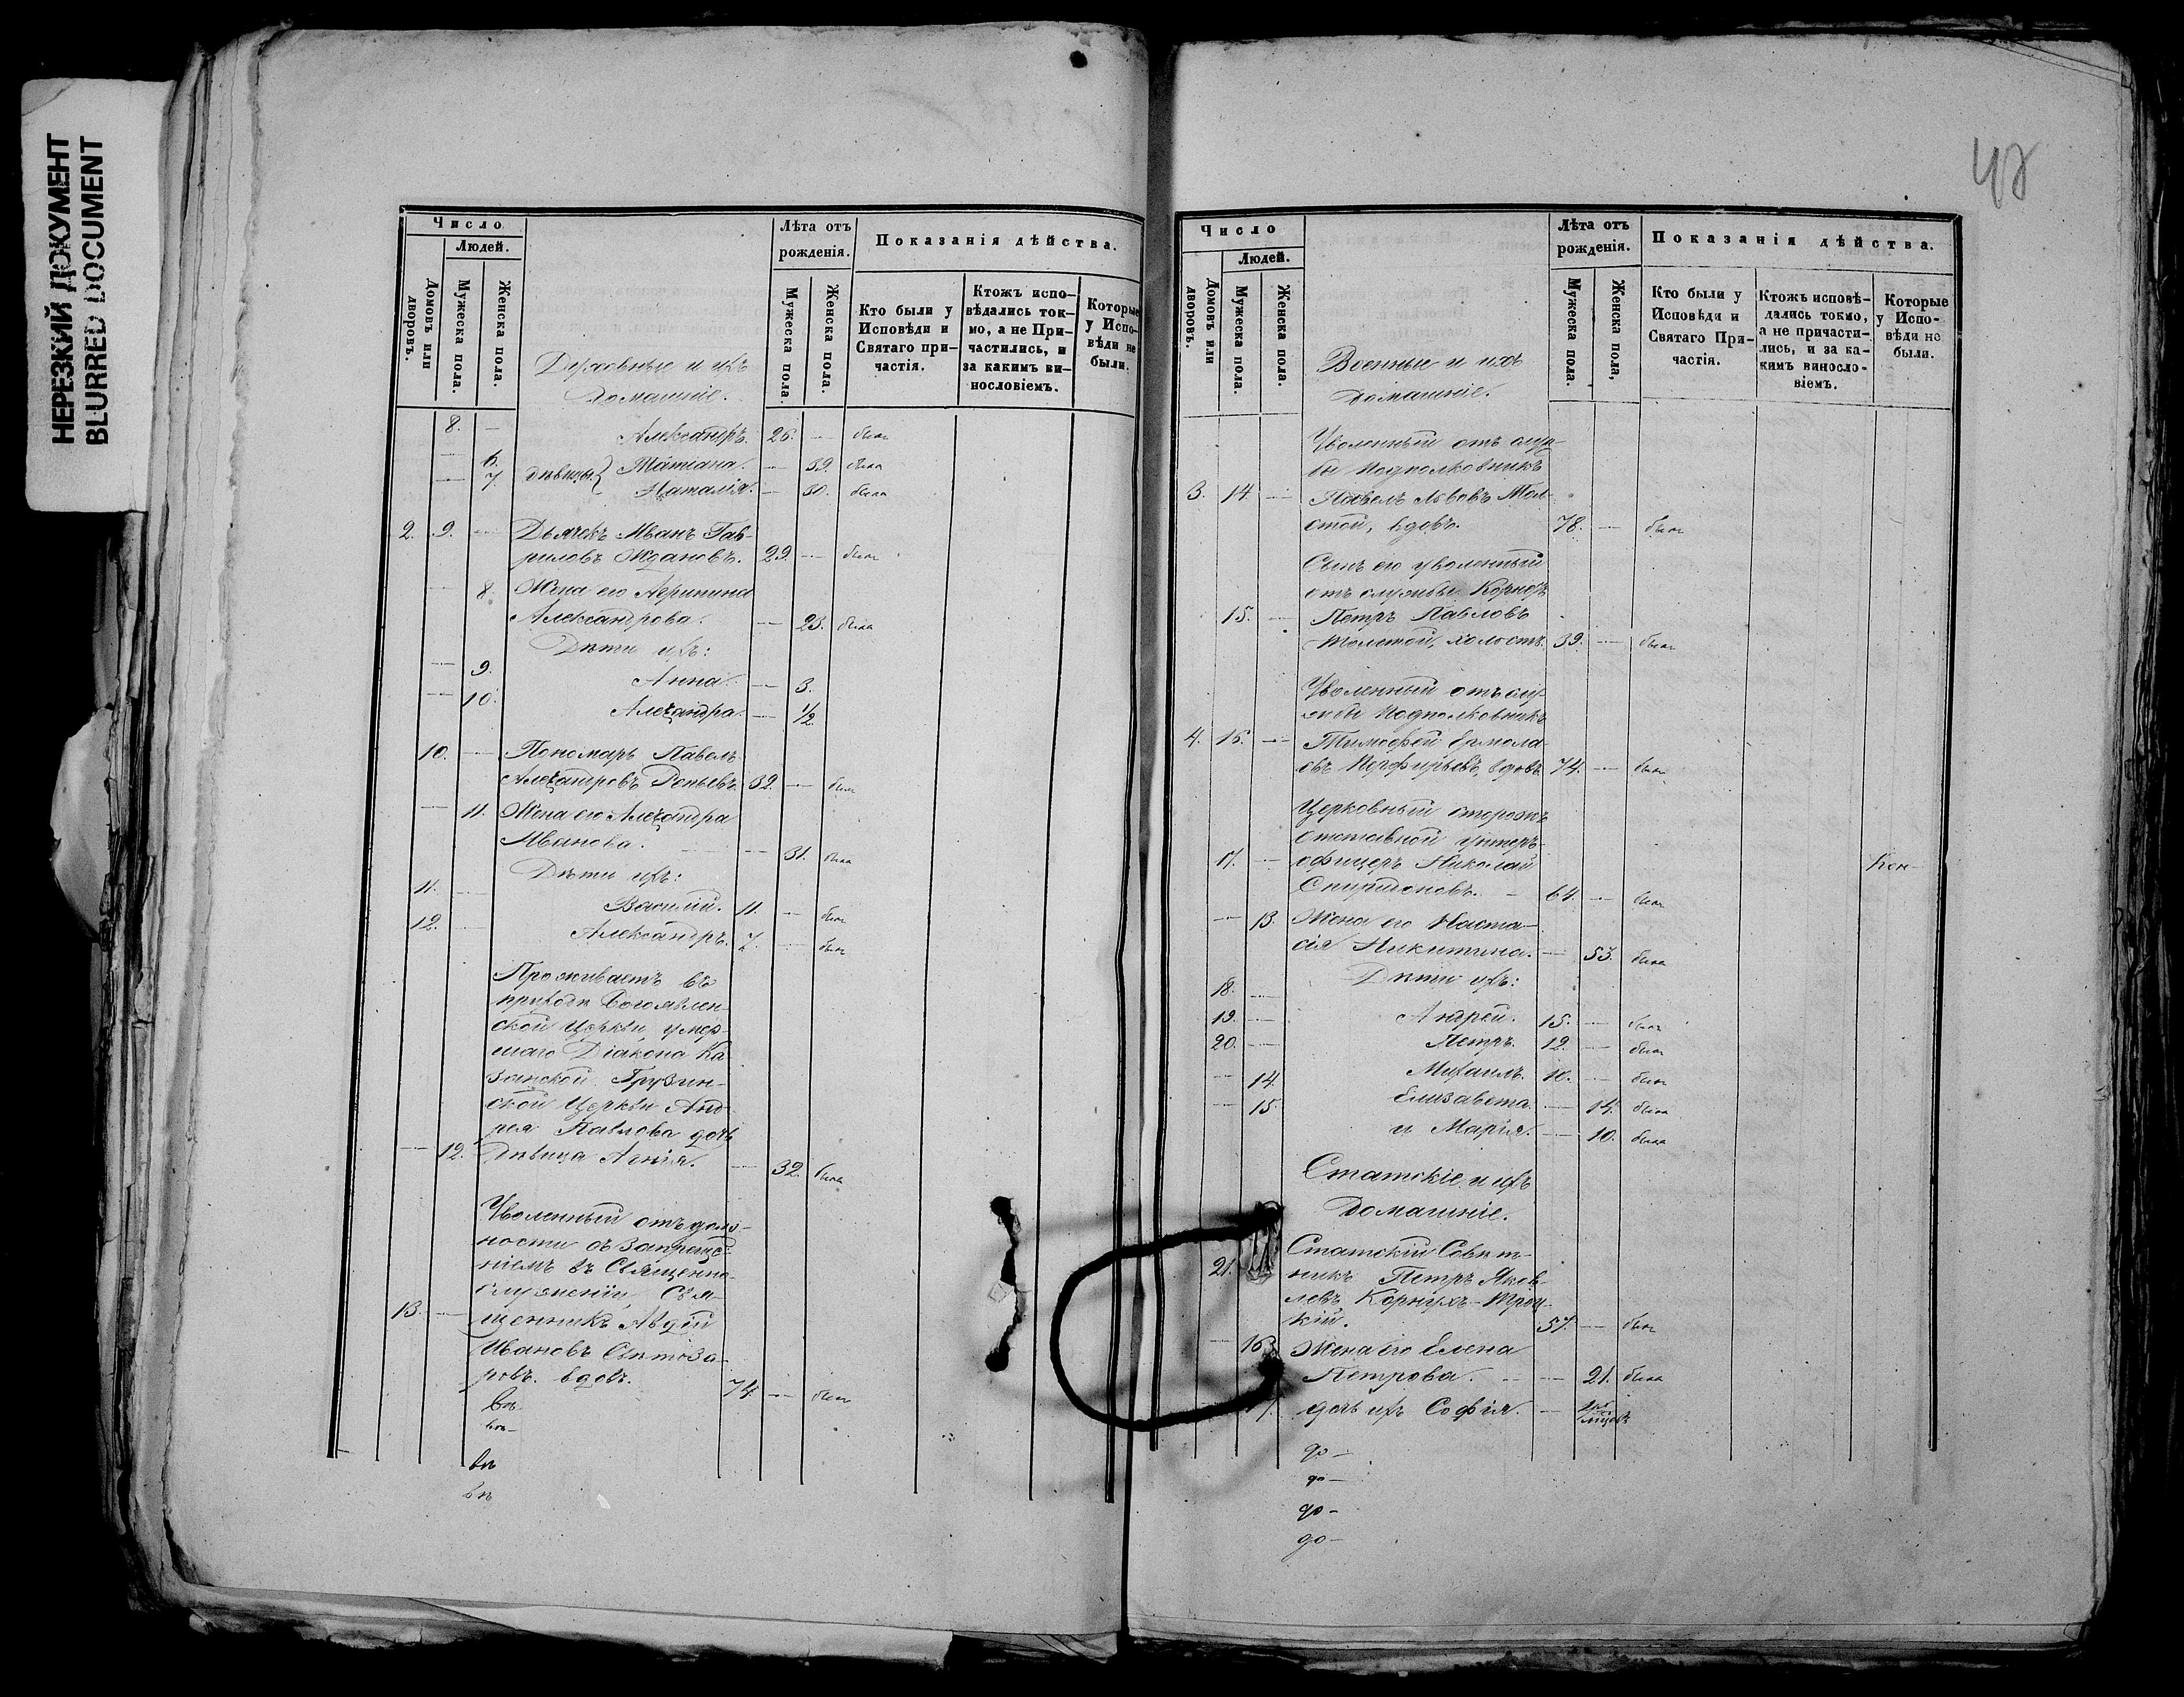 НЕРЕЗКИЙ ДОКУМЕНТ
BLURRED DOCUMENT
Число
Людей.
Домовъ или дворовъ.
Мужеска пола.
Женска пола.
Духовные и ихъ
Домашніе.
Лѣта отъ рожденія.
Мужеска пола.
Женска пола.
Показанія дѣйства.
Кто были у Исповѣди и Святаго причастія.
Ктожъ исповѣдались токмо, а не Причастились, и за какимъ винословіемъ.
Которые у Исповѣди не были.
8. — Александръ. 26. — былъ
— 6. дѣвицы Татіана. — 39. была
— 7. Наталія. — 30. была
2. 9. — Дьячекъ Иванъ Гав-
риловъ Ждановъ. 29. — былъ
— 8. Жена его Агрипина
Александрова. — 23. была
Дѣти ихъ:
— 9. Анна. — 3.
— 10. Александра. — 1/2
10. — Пономарь Павелъ
Александровъ 32. — былъ
— 11. Жена его Александра
Иванова. — 31. была
Дѣти ихъ:
11. — Василій. 11. — былъ
12. — Александръ. 7. — былъ
Проживаетъ въ
приходѣ Богоявлен-
ской Церкви умер-
шаго Діакона Ка-
занской Грузин-
ской Церкви Анд-
рея Павлова дочь
— 12. Дѣвица 32. была
Уволенный отъ долж-
ности съ запреще-
ніемъ въ Священно-
служеніи, Свя-
13. — щенникъ Авдій
Ивановъ Свѣтоза-
ровъ. вдовъ. 74. — былъ
въ
въ
въ
48
Число
Людей.
Домовъ или дворовъ.
Мужеска пола.
Женска пола.
Военные и ихъ
Домашніе.
Лѣта отъ рожденія.
Мужеска пола.
Женска пола,
Показанія дѣйства.
Кто были у Исповѣди и Святаго Причастія.
Ктожъ исповѣдались токмо, а не причастились, и за какимъ винословіемъ.
Которые у Исповѣди не были.
Уволенный отъ служ-
бы Подполковникъ
3. 14. — Павелъ Львовъ Тол-
стой, вдовъ. 78. — былъ
Сынъ его уволенный
отъ службы Корнетъ
15. — Петръ Павловъ
Толстой, холостъ. 39. — былъ
Уволенный отъ слу-
жбы Подполковникъ
4. 16. — Тимофей Ермола-
евъ вдовъ 74. — былъ
Церковный сторожъ
отставной унтеръ-
17. — офицеръ Николай
Спиридоновъ. — 64. — былъ
— 13. Жена его Наста-
сія Никитина. — 53. была
Дѣти ихъ:
18. — Андрей. 15. — былъ
19. — Петръ. 12. — былъ
20. — Михаилъ. 10. — былъ
— 14. Елизавета — 14. была
— 15. и Марія. — 10. была
Статскіе и ихъ
Домашніе.
Статскій Совѣт-
21. никъ Петръ Яков-
левъ Корнухъ-Троц-
кій. 57. — былъ
— 16. Жена его Елена
Петрова. — — 21. была
17. дочь ихъ Софія. —
до-
до-
до-
до-